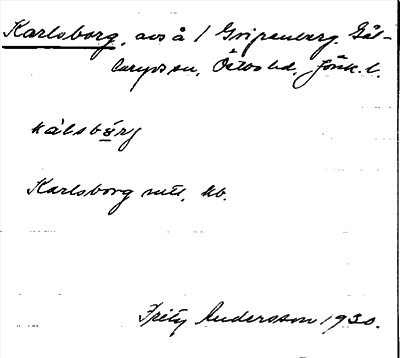 Karlsborg, avs å / Gripenberg. Bäl-
laryds sn, Östbo hd, Jönk. l.
kàlsbärg
Karlsborg mtl, kb.
Fritz Andersson 1930.